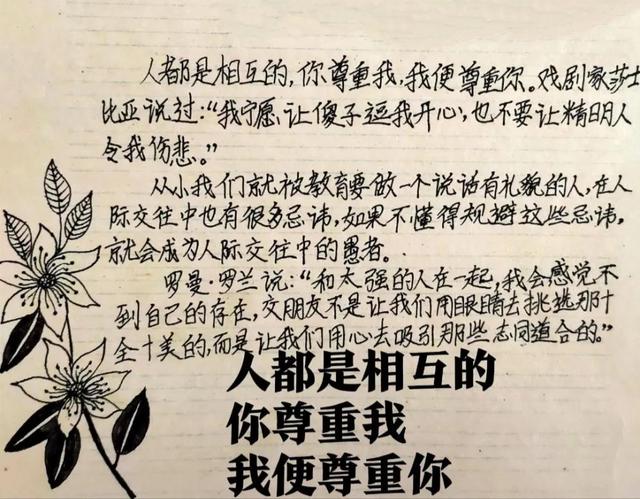 人都是相互的,你尊重我,我便尊重你。戏剧家莎士
比亚说过:“我宁愿让傻子逗我开心,也不要让精明人
令我伤悲。”
从小我们就被教育要做一个说话有礼貌的人,在人
际交往中也有很多忌讳,如果不懂得规避这些忌讳,
就会成为人际交往中的愚者。
罗曼·罗兰说:“和太强的人在一起,我会感觉不
到自己的存在,交朋友不是让我们用眼睛去挑选那十
全十美的,而是让我们用心去吸引那些志同道合的。”
人都是相互的
你尊重我
我便尊重你